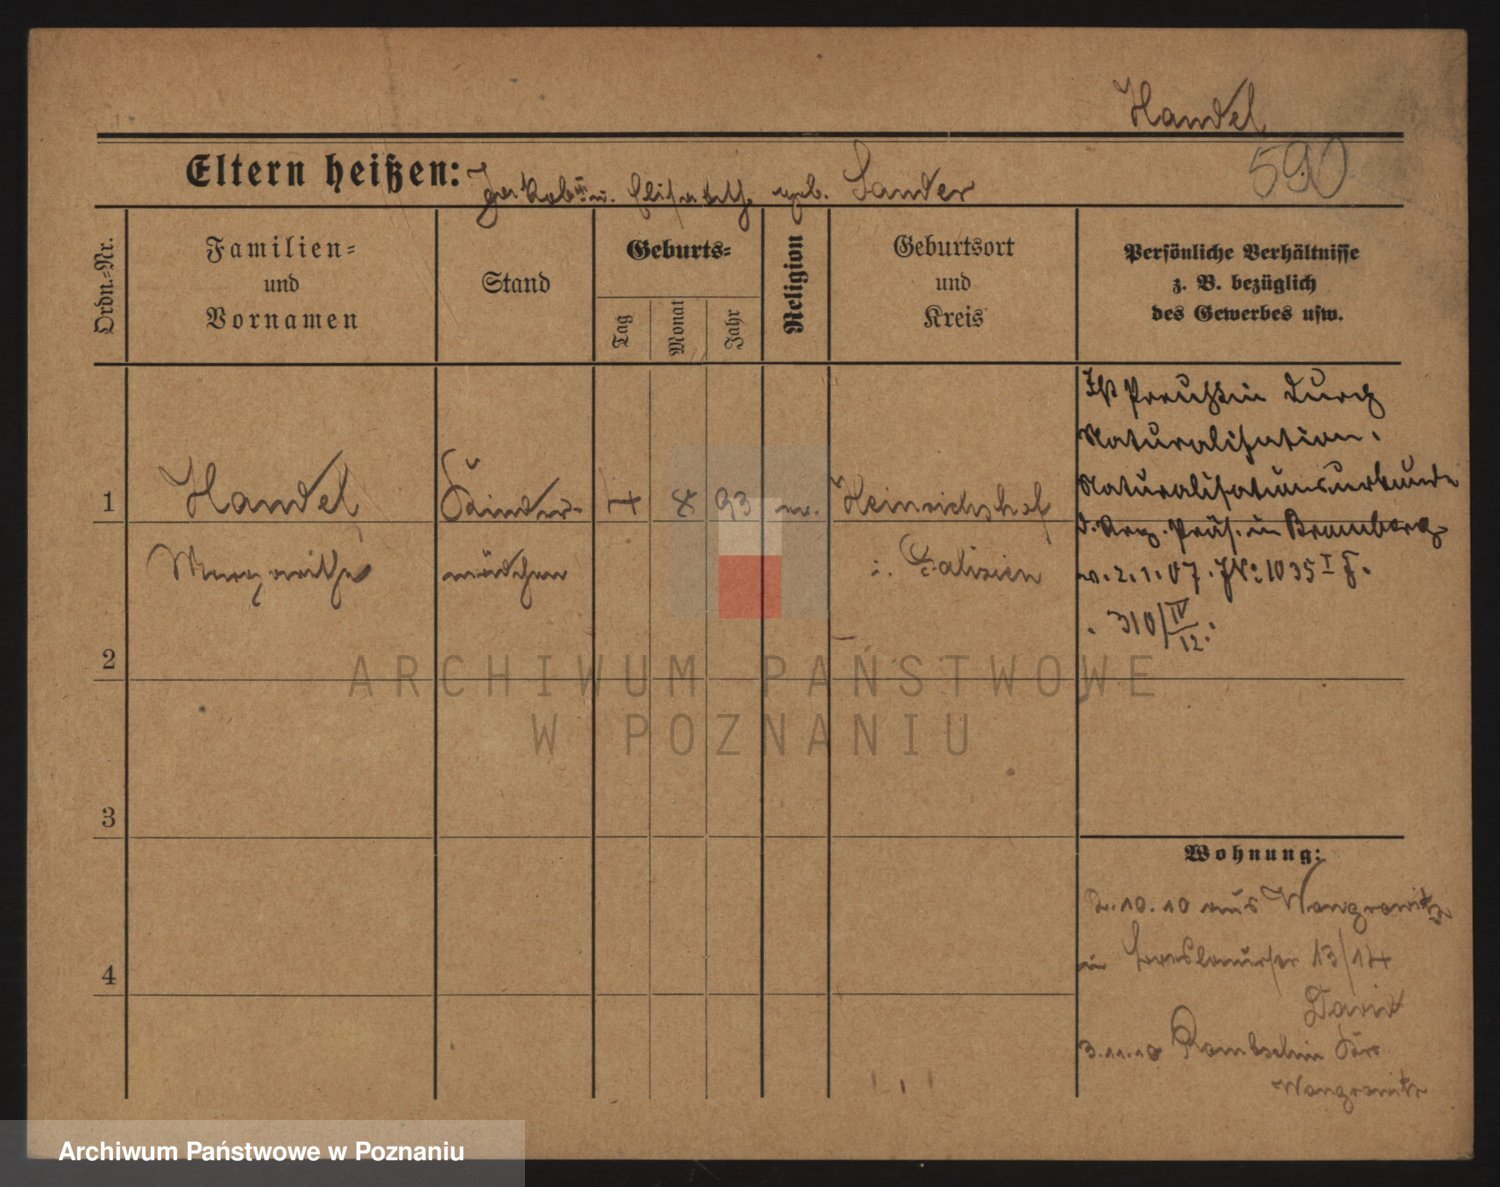 Handel
590
Eltern heißen: Jakob u. Elisabeth geb. Sander
Ordn.-Nr.
Familien-
und
Vornamen
Stand
Geburts-
Tag
Monat
Jahr
Religion
Geburtsort
und
Kreis
Persönliche Verhältnisse
z. B. bezüglich
des Gewerbes usw.
1
Handel
Margarethe
Kinder-
mädchen
7 8 93 ev.
Heinrichshof
i. Galizien
Ist Preußin durch
Naturalisation.
Naturalisationsurkunde
d. Reg. Präs. in Bromberg
v. 2.1.07. JNo 1035 I F.
310/IV 12.
2
3
4
Wohnung:
2.10.10 aus Wongrowitz
in 13/14
3.11.10 Rombschin Krs
Wongrowitz
ARCHIWUM PAŃSTWOWE
W POZNANIU
Archiwum Państwowe w Poznaniu